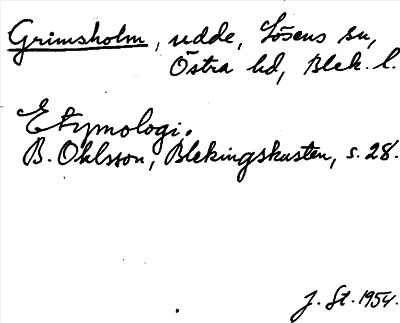 Grimsholm, udde, Lösens sn,
Östra hd, Blek. l.
Etymologi.
B. Ohlsson, Blekingskusten, s. 28.
J. St. 1954.